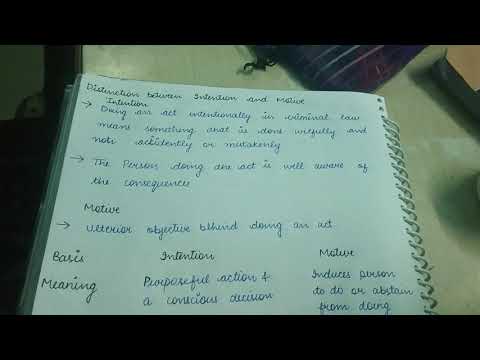 Distinction between Intention and Motive
Intention
→ Doing an act intentionally in criminal law
means something that is done wilfully and
not accidently or mistakenly
→ The Person doing the act is well aware of
the consequences
Motive
→ Ulterior objective behind doing an act
Basis Intention Motive
Meaning Purposeful action & Induces person
a conscious decision to do or abstain
from doing